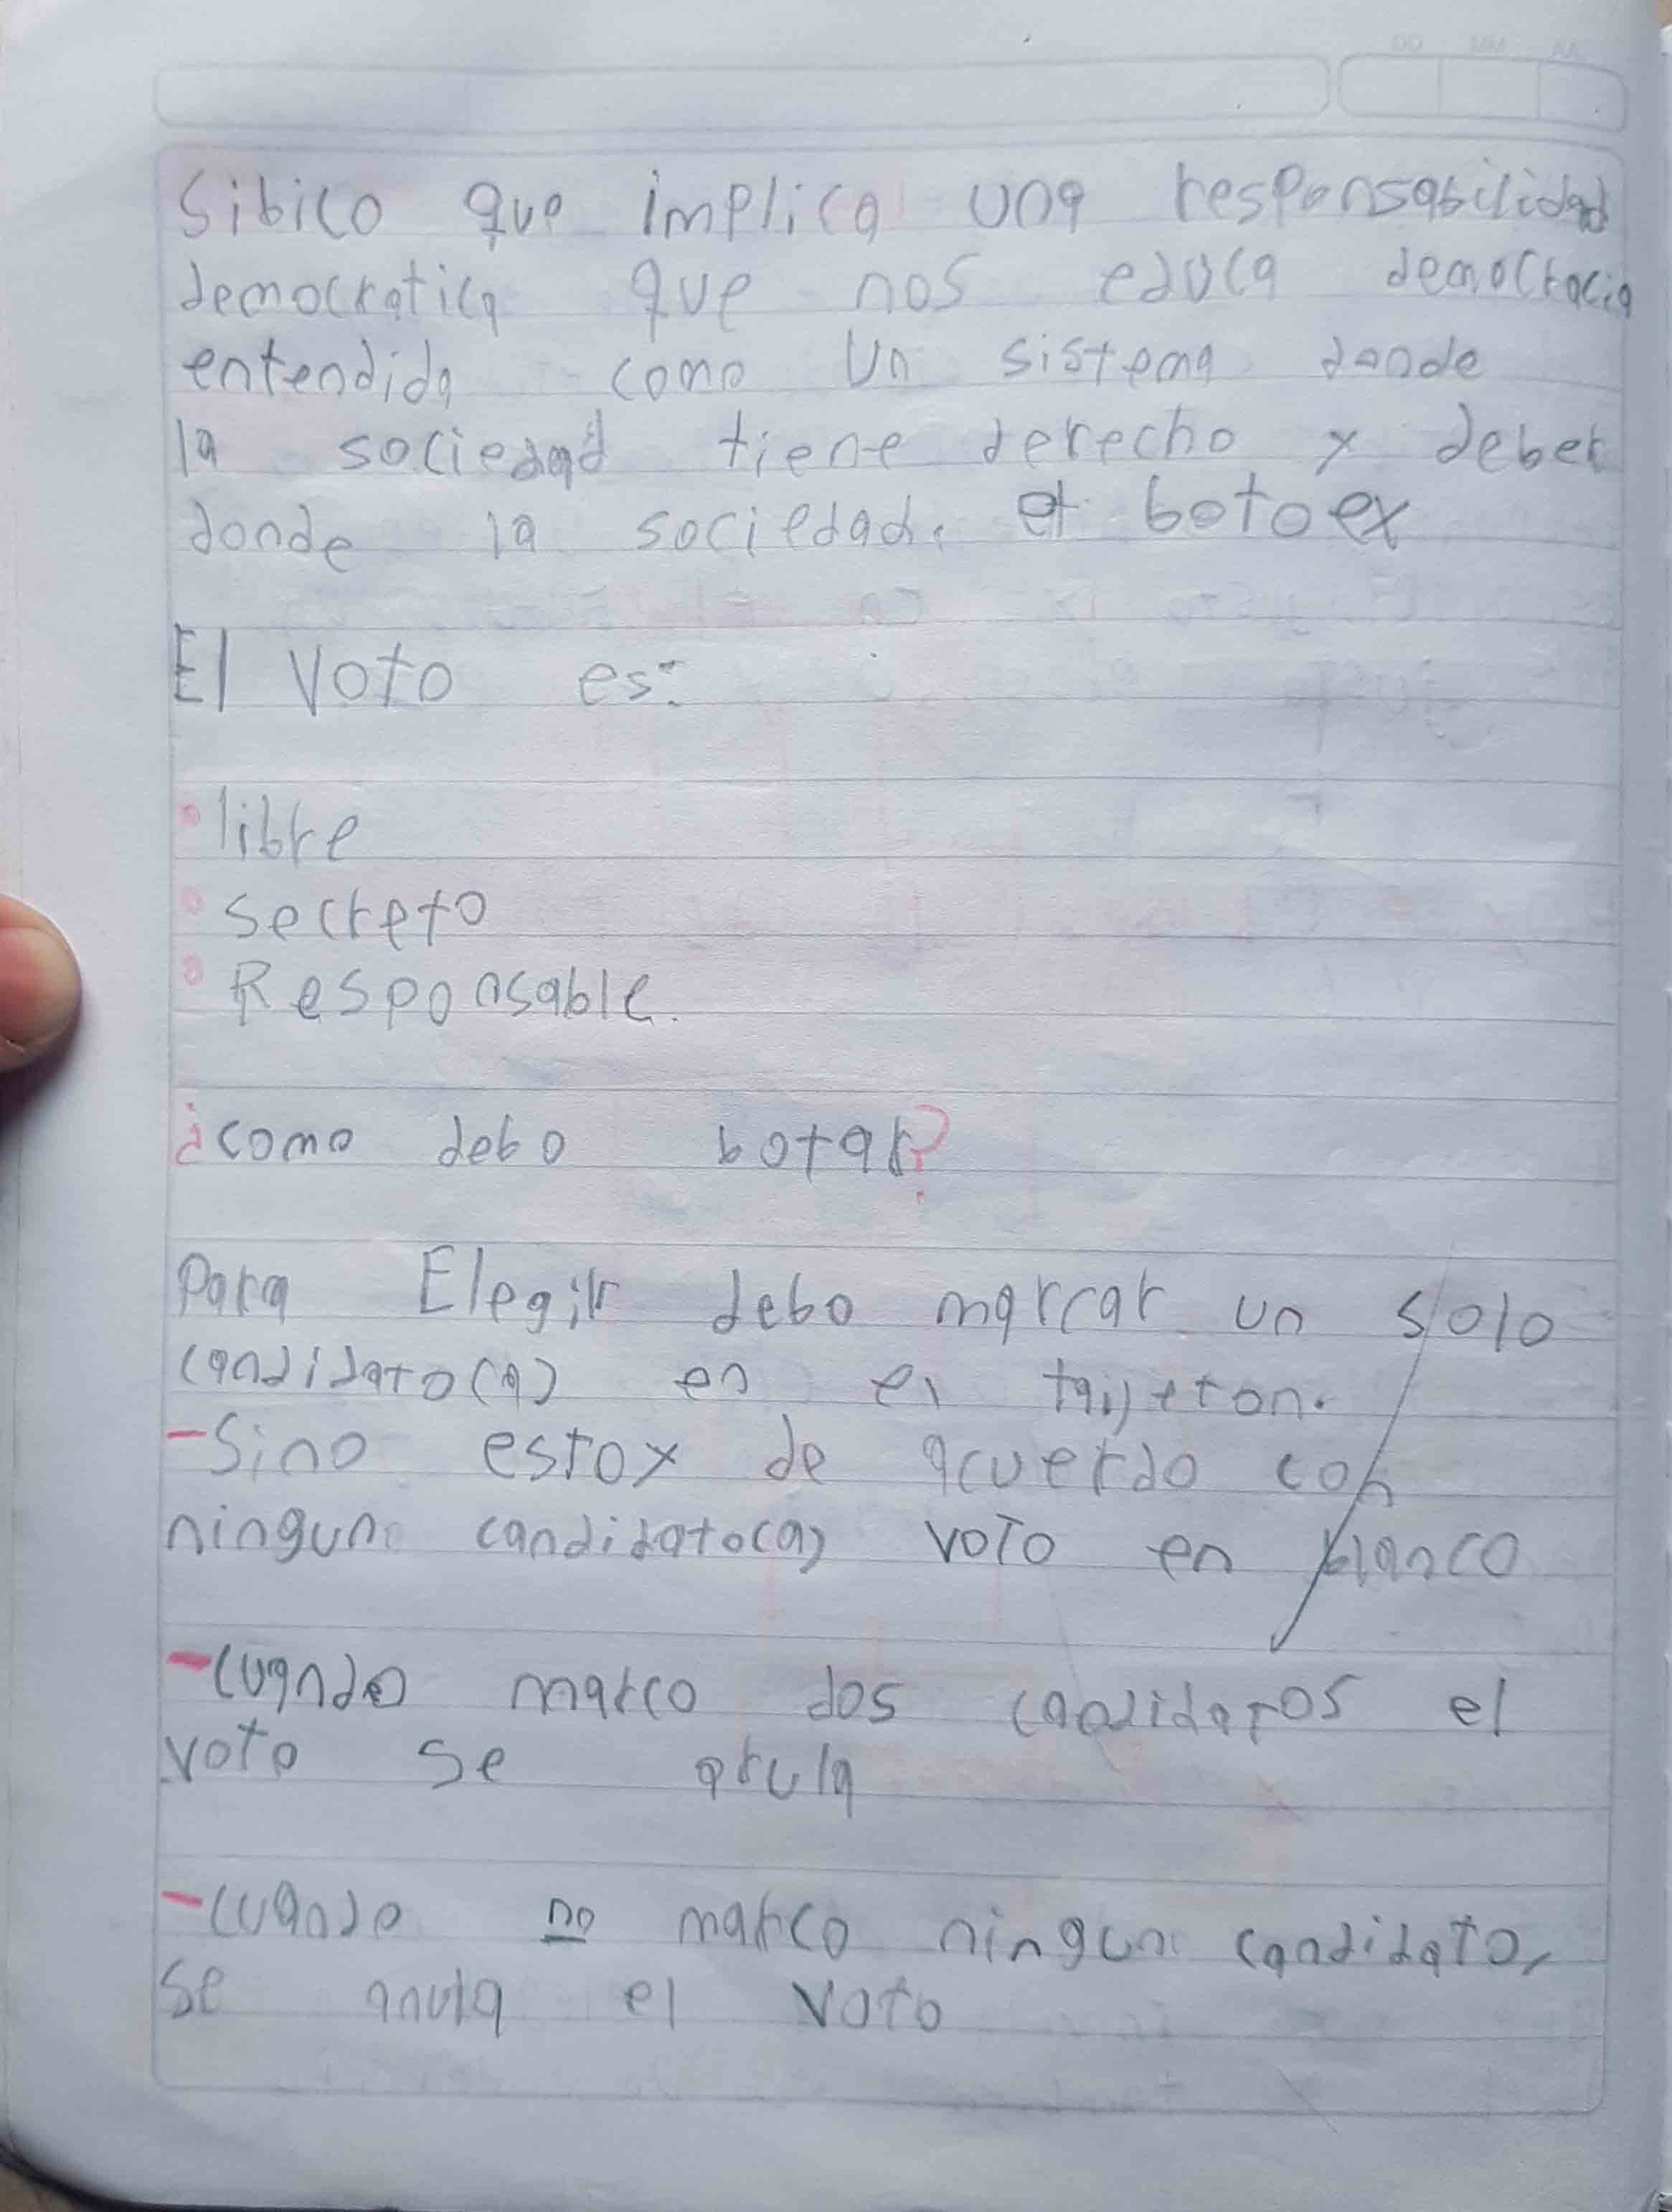 Sibico que implica una responsabilidad
democratica que nos educa democracia
entendida como un sistema donde
la sociedad tiene derecho y deber
donde la sociedad. el boto ex
El voto es:
• libre
• secreto
• Responsable.
¿como debo botar?
Para Elegir debo marcar un solo
candidato(a) en el tarjeton.
-Sino estoy de acuerdo con
ningun candidato(a) voto en blanco
-cuando marco dos candidatos el
voto se anula
-cuando no marco ningun candidato,
se anula el voto